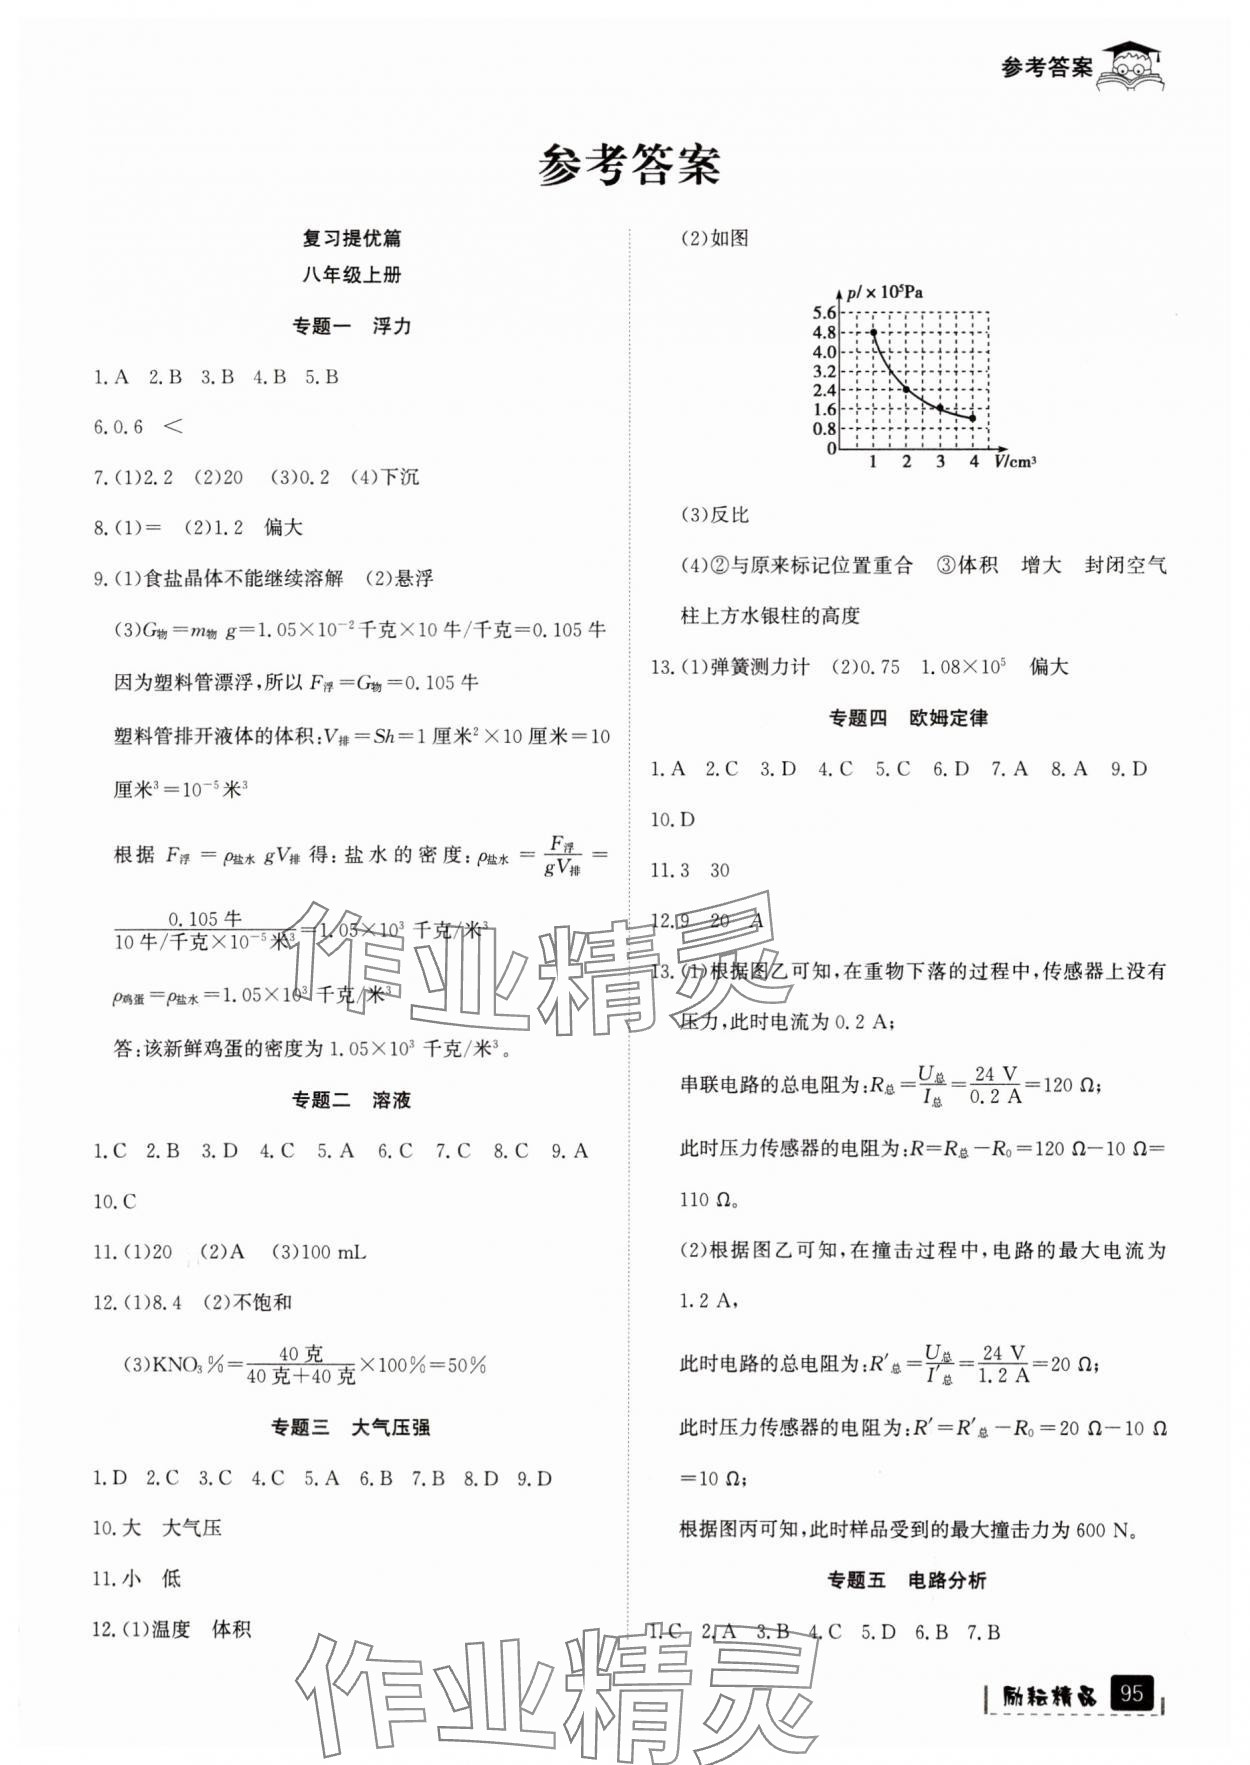 参考答案
参考答案
复习提优篇
八年级上册
专题一 浮力
1.A 2.B 3.B 4.B 5.B
6.0.6 <
7.(1)2.2 (2)20 (3)0.2 (4)下沉
8.(1)= (2)1.2 偏大
9.(1)食盐晶体不能继续溶解 (2)悬浮
(3)G物=m物 g=1.05×10⁻²千克×10 牛/千克=0.105牛
因为塑料管漂浮,所以 F浮=G物=0.105牛
塑料管排开液体的体积:V排=Sh=1厘米²×10厘米=10
厘米³=10⁻⁵米³
根据 F浮 = ρ盐水 gV排 得:盐水的密度:ρ盐水 = F浮/gV排 =
0.105牛/10牛/千克×10⁻⁵米³=1.05×10³ 千克/米³
ρ鸡蛋=ρ盐水=1.05×10³ 千克/米³
答:该新鲜鸡蛋的密度为1.05×10³ 千克/米³。
专题二 溶液
1.C 2.B 3.D 4.C 5.A 6.C 7.C 8.C 9.A
10.C
11.(1)20 (2)A (3)100 mL
12.(1)8.4 (2)不饱和
(3)KNO₃%=40克/40克+40克×100%=50%
专题三 大气压强
1.D 2.C 3.C 4.C 5.A 6.B 7.B 8.D 9.D
10.大 大气压
11.小 低
12.(1)温度 体积
(2)如图
p/×10⁵Pa
5.6
4.8
4.0
3.2
2.4
1.6
0.8
0
1 2 3 4 V/cm³
(3)反比
(4)②与原来标记位置重合 ③体积 增大 封闭空气
柱上方水银柱的高度
13.(1)弹簧测力计 (2)0.75 1.08×10⁵ 偏大
专题四 欧姆定律
1.A 2.C 3.D 4.C 5.C 6.D 7.A 8.A 9.D
10.D
11.3 30
12.9 20 A
13.(1)根据图乙可知,在重物下落的过程中,传感器上没有
压力,此时电流为0.2 A;
串联电路的总电阻为:R总=U总/I总=24 V/0.2 A=120 Ω;
此时压力传感器的电阻为:R=R总-R₀=120 Ω-10 Ω=
110 Ω。
(2)根据图乙可知,在撞击过程中,电路的最大电流为
1.2 A,
此时电路的总电阻为:R′总=U总/I′总=24 V/1.2 A=20 Ω;
此时压力传感器的电阻为:R′=R′总-R₀=20 Ω-10 Ω
=10 Ω;
根据图丙可知,此时样品受到的最大撞击力为600 N。
专题五 电路分析
1.C 2.A 3.B 4.C 5.D 6.B 7.B
励耘精品 95
作业精灵
作业精灵